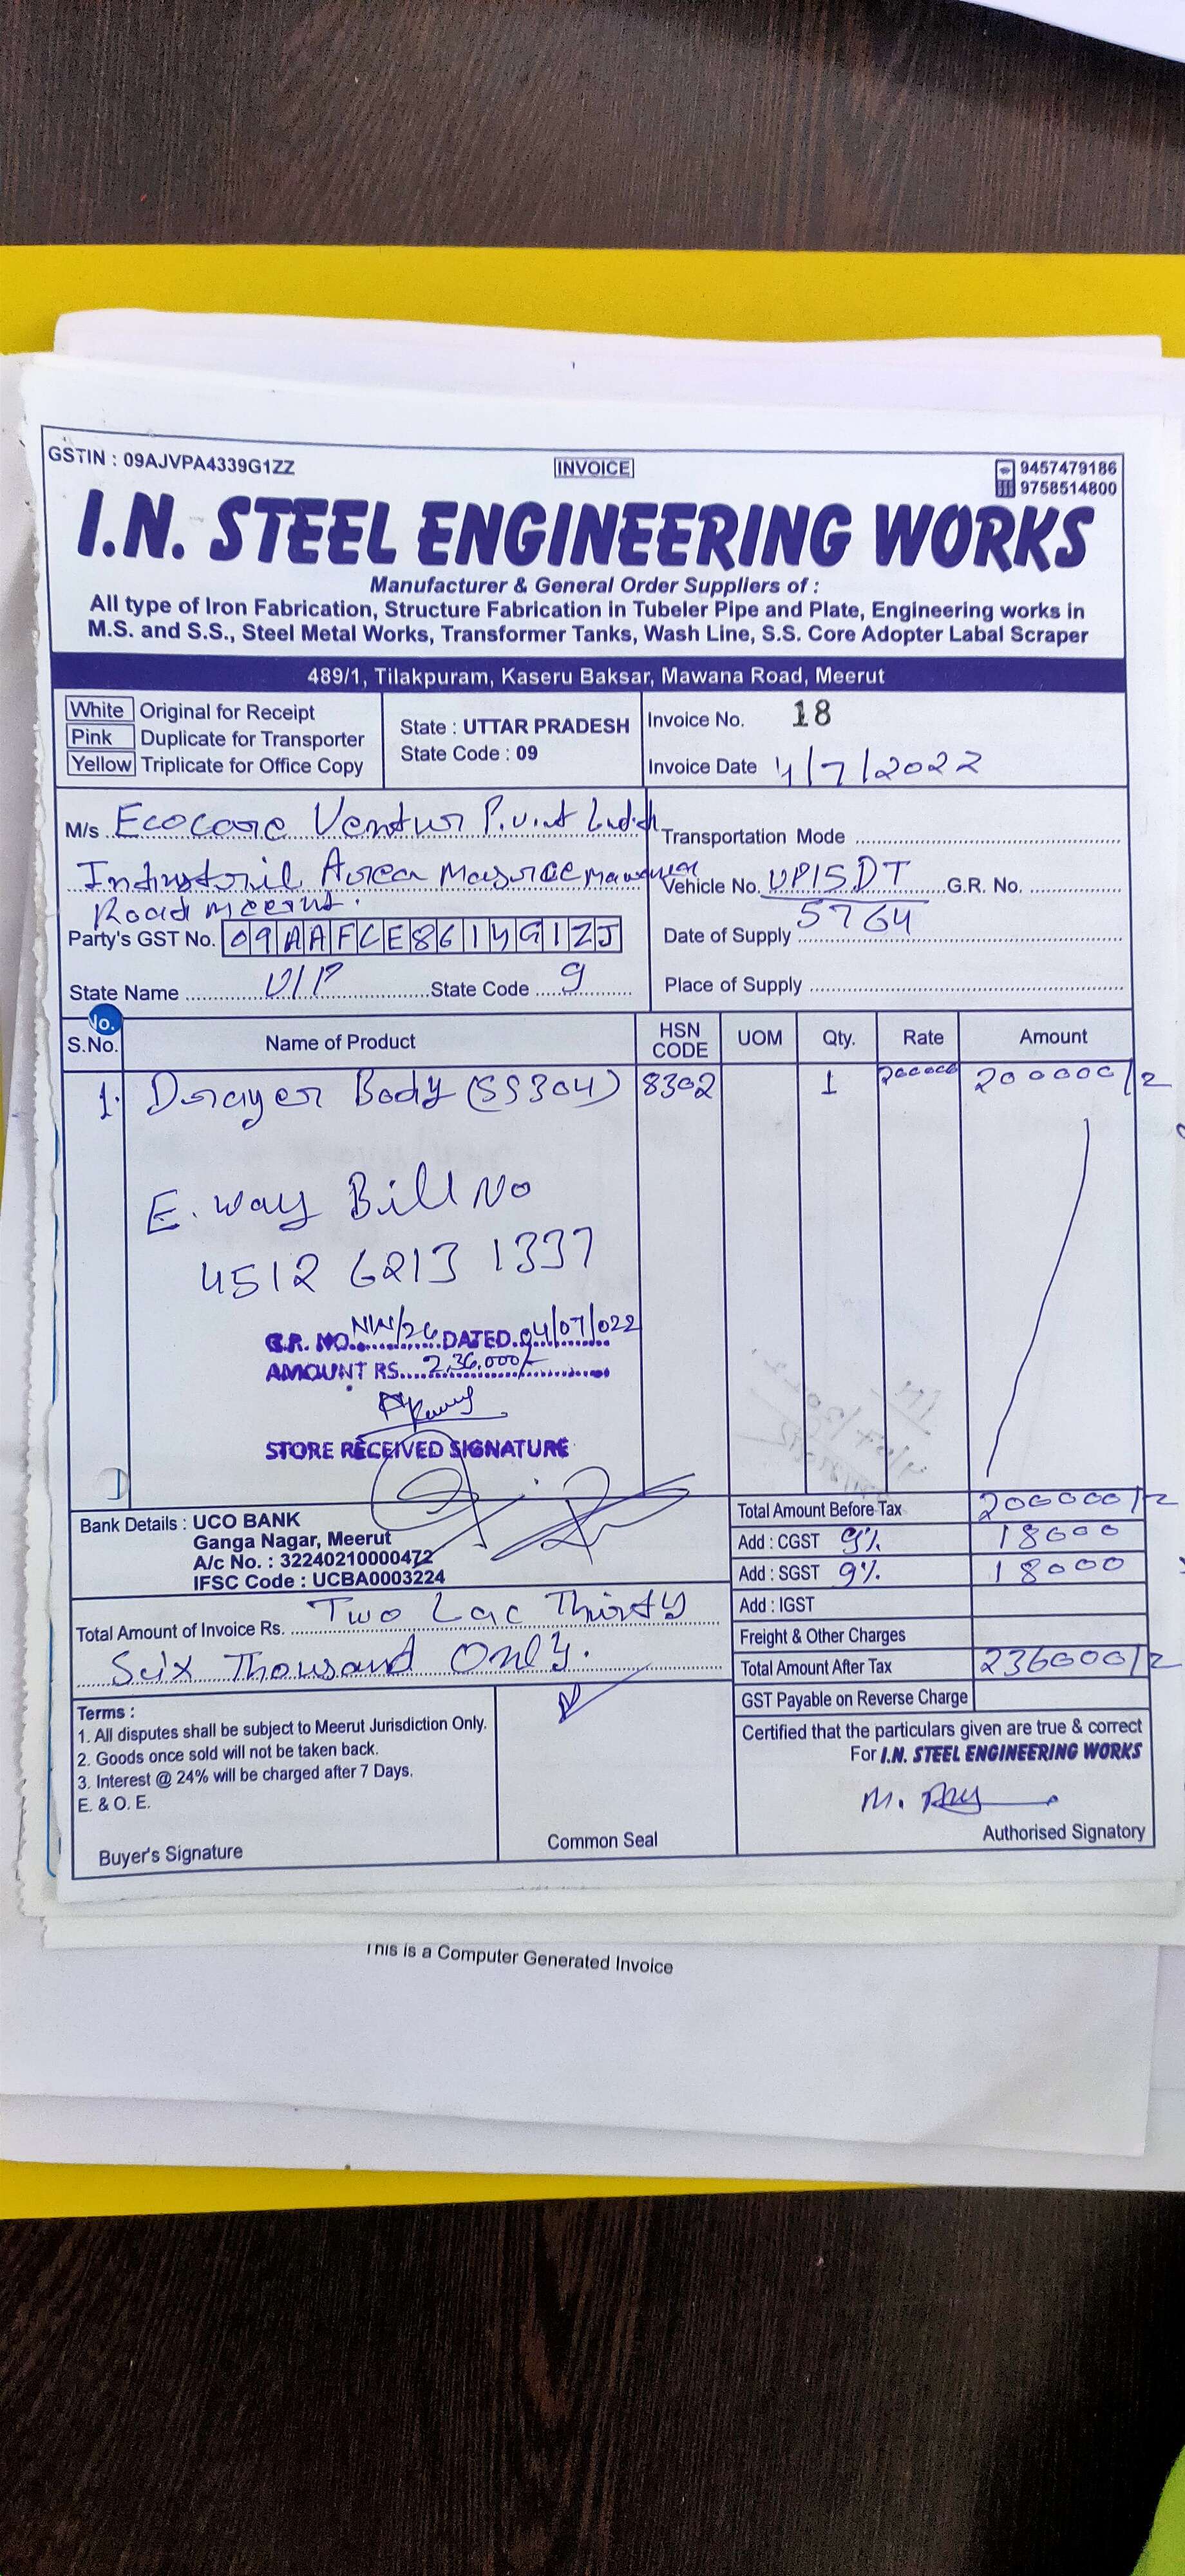 GSTIN : 09AJVPA4339G1ZZ
INVOICE
9457479186
9758514800
I.N. STEEL ENGINEERING WORKS
Manufacturer & General Order Suppliers of :
All type of Iron Fabrication, Structure Fabrication in Tubeler Pipe and Plate, Engineering works in
M.S. and S.S., Steel Metal Works, Transformer Tanks, Wash Line, S.S. Core Adopter Labal Scraper
489/1, Tilakpuram, Kaseru Baksar, Mawana Road, Meerut
White Original for Receipt
Pink Duplicate for Transporter
Yellow Triplicate for Office Copy
State : UTTAR PRADESH
State Code : 09
Invoice No. 18
Invoice Date 4/7/2022
M/s Ecocare Ventur
Area
Road Meerut.
Party's GST No. 09AAFCE8614G1ZJ
State Name U/P State Code 9
Transportation Mode
Vehicle No. UP15DT G.R. No.
5764
Date of Supply
Place of Supply
No.
S.No. Name of Product HSN CODE UOM Qty. Rate Amount
1. Drayer Body (SS304) 8302 1 200000 200000/2
E. Way Bill No
4512 6213 1337
G.R. NO. NW/26 DATED. 04/07/022
AMOUNT RS. 2,36,000/-
STORE RECEIVED SIGNATURE
Bank Details : UCO BANK
Ganga Nagar, Meerut
A/c No. : 32240210000472
IFSC Code : UCBA0003224
Total Amount of Invoice Rs. Two Lac Thirty
Six Thousand Only.
Total Amount Before Tax 200000/2
Add : CGST 9% 18000
Add : SGST 9% 18000
Add : IGST
Freight & Other Charges
Total Amount After Tax 236000/2
GST Payable on Reverse Charge
Terms :
1. All disputes shall be subject to Meerut Jurisdiction Only.
2. Goods once sold will not be taken back.
3. Interest @ 24% will be charged after 7 Days.
E. & O. E.
Buyer's Signature
Common Seal
Certified that the particulars given are true & correct
For I.N. STEEL ENGINEERING WORKS
Authorised Signatory
This is a Computer Generated Invoice